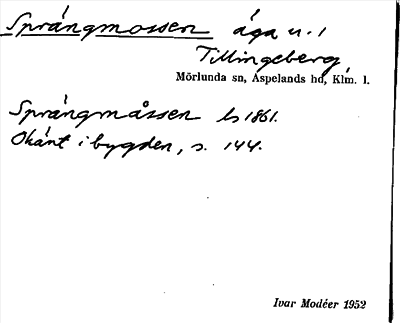 Språngmossen äga n. 1
Tillingeberg
Mörlunda sn, Aspelands hd, Klm. l.
Språngmåssen ls 1861.
Okänt i bygden, s. 144.
Ivar Modéer 1952